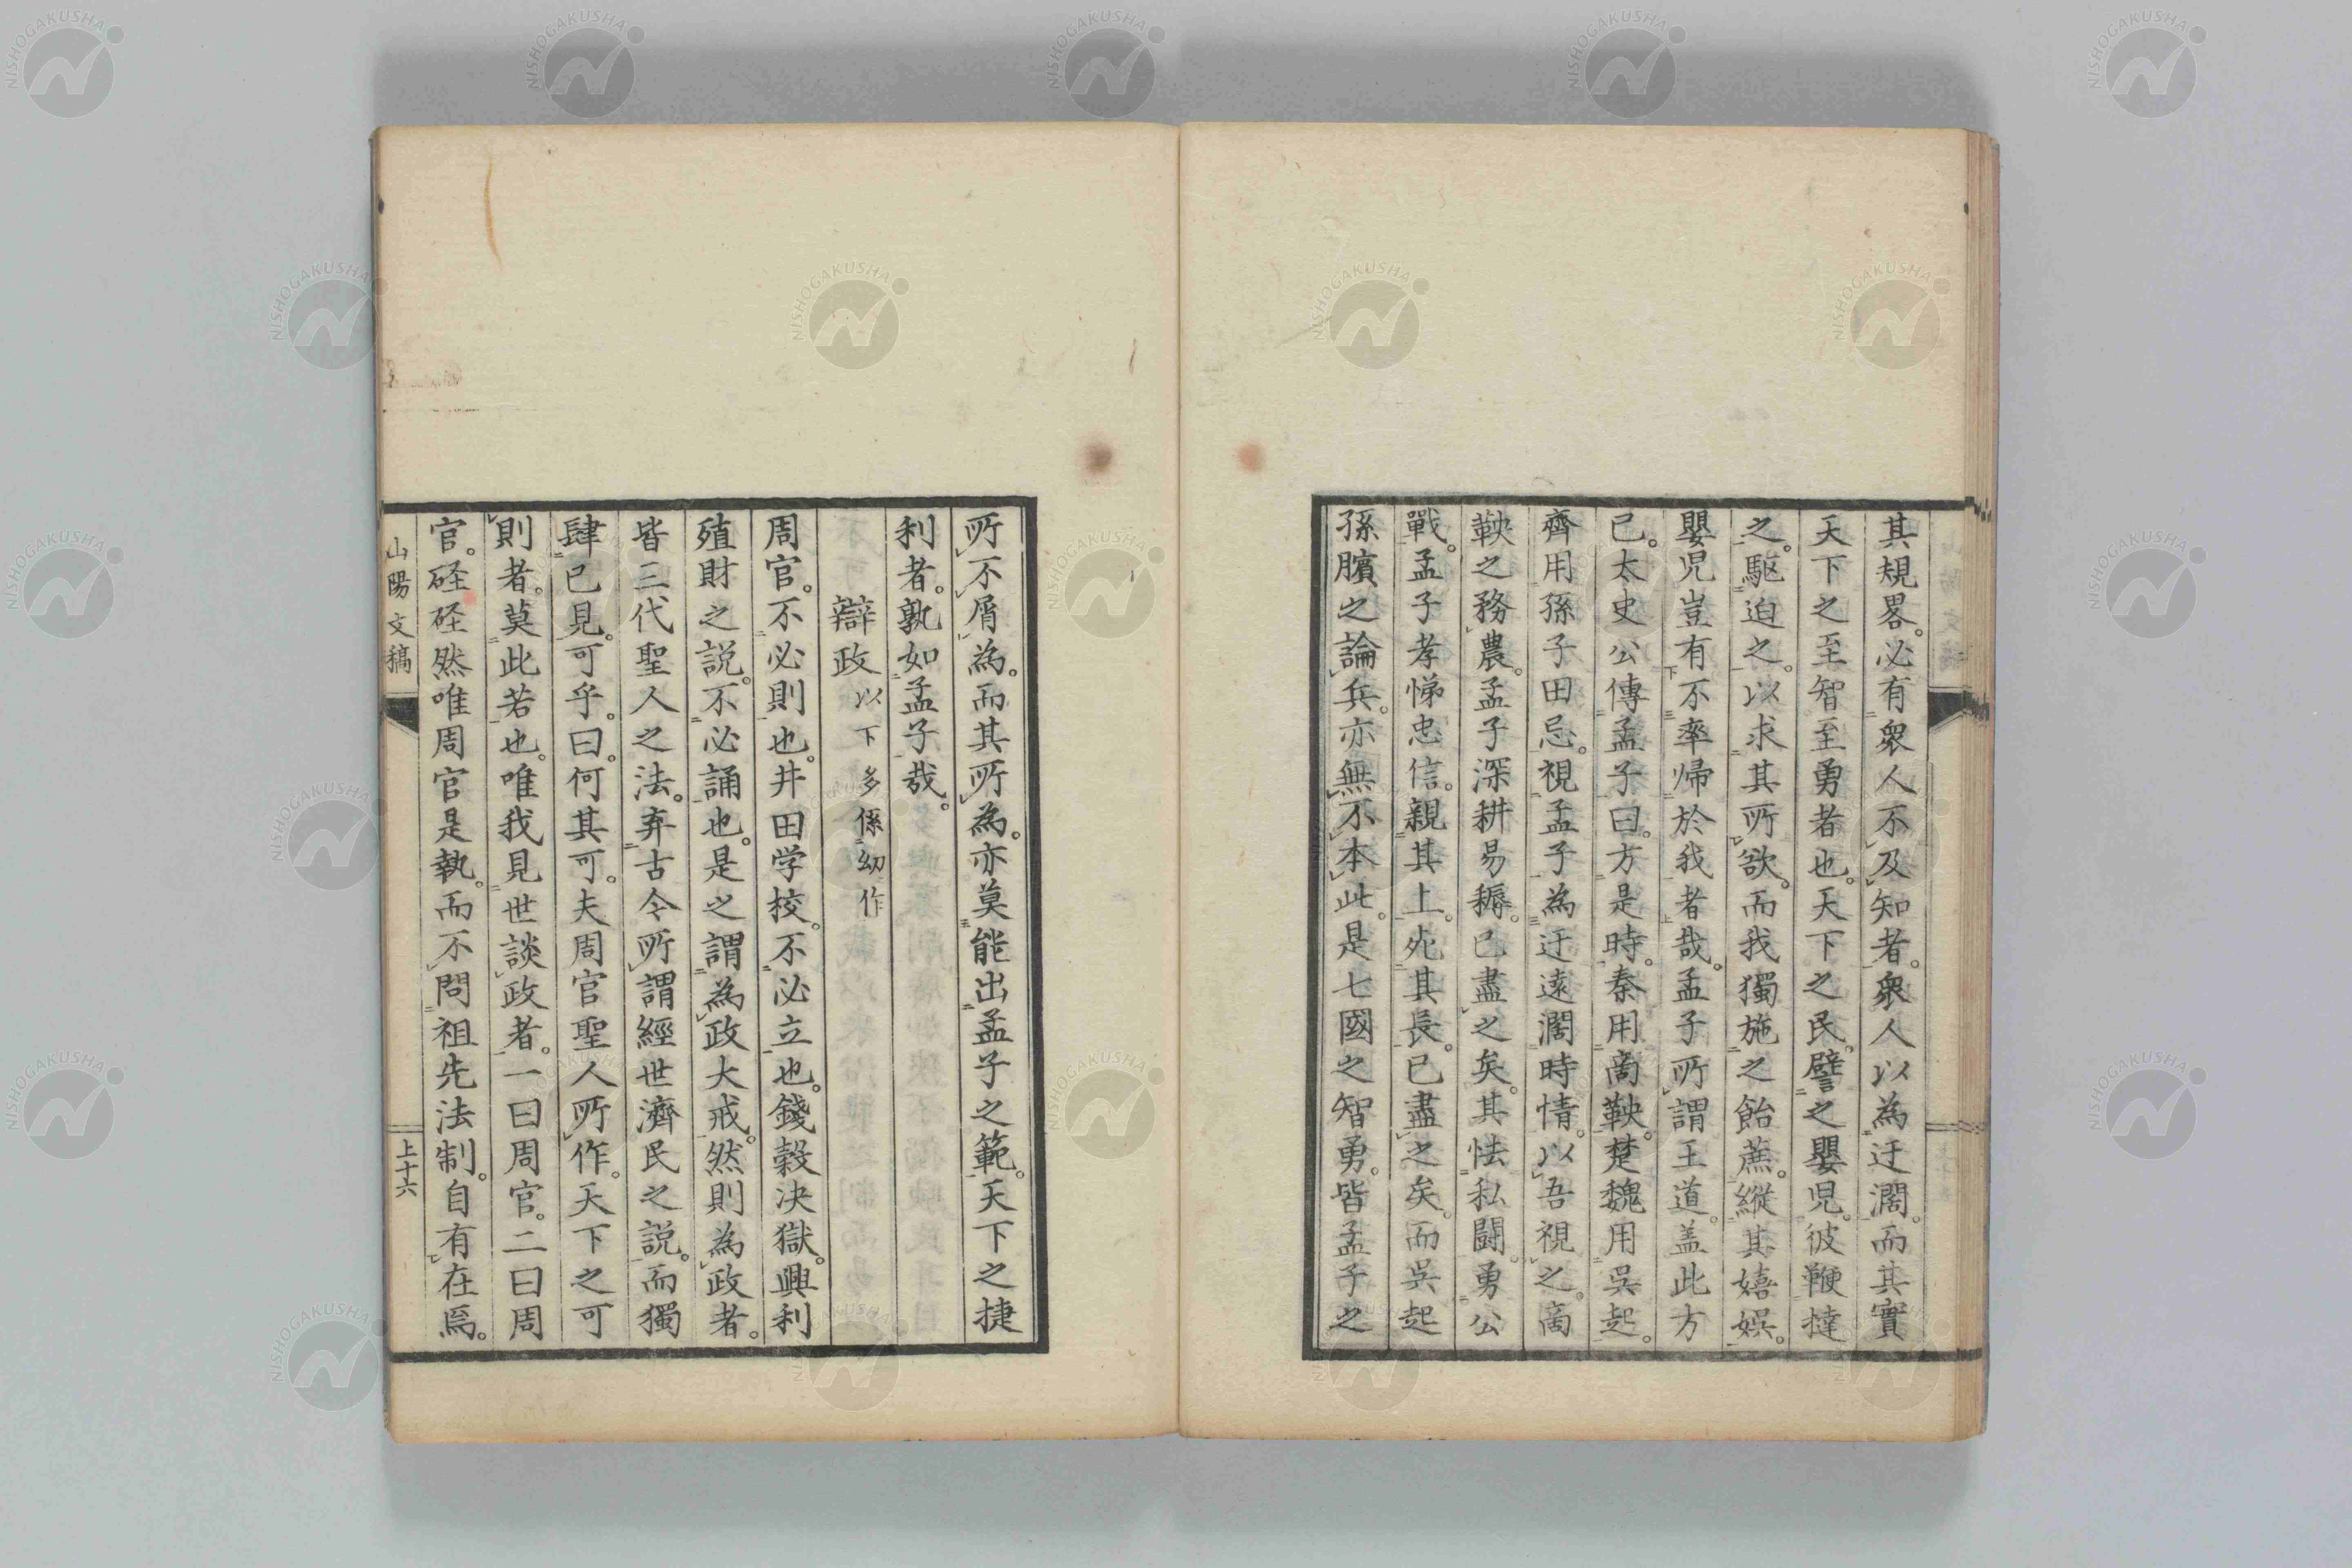 其規畧。必有衆人不及知者。衆人以為迂濶。而其實
天下之至智至勇者也。天下之民。譬之嬰児。彼鞭撻
之。駆迫之。以求其所欲。而我獨施之飴蔗。縱其嬉娯。
嬰児豈有不率帰於我者哉。孟子所謂王道。盖此方
已。太史公傳孟子曰。方是時。秦用商鞅。楚魏用吳起。
齊用孫子田忌。視孟子為迂遠濶時情。以吾視之。商
鞅之務農。孟子深耕易耨。已盡之矣。其怯私闘。勇公
戰。孟子孝悌忠信。親其上。死其長。已盡之矣。而吳起
孫臏之論兵。亦無不本此。是七國之智勇。皆孟子之
所不屑為。而其所為。亦莫能出孟子之範。天下之捷
利者。孰如孟子哉。
辯政 以下多係幼作
周官。不必則也。井田学校。不必立也。錢穀決獄。興利
殖財之説。不必誦也。是之謂為政大戒。然則為政者。
皆三代聖人之法。弃古今所謂經世濟民之説。而獨
肆已見。可乎。曰。何其可。夫周官聖人所作。天下之可
則者。莫此若也。唯我見世談政者。一曰周官。二曰周
官。硜硜然唯周官是執。而不問祖先法制。自有在焉。
山陽文稿
上十六
NISHOGAKUSHA